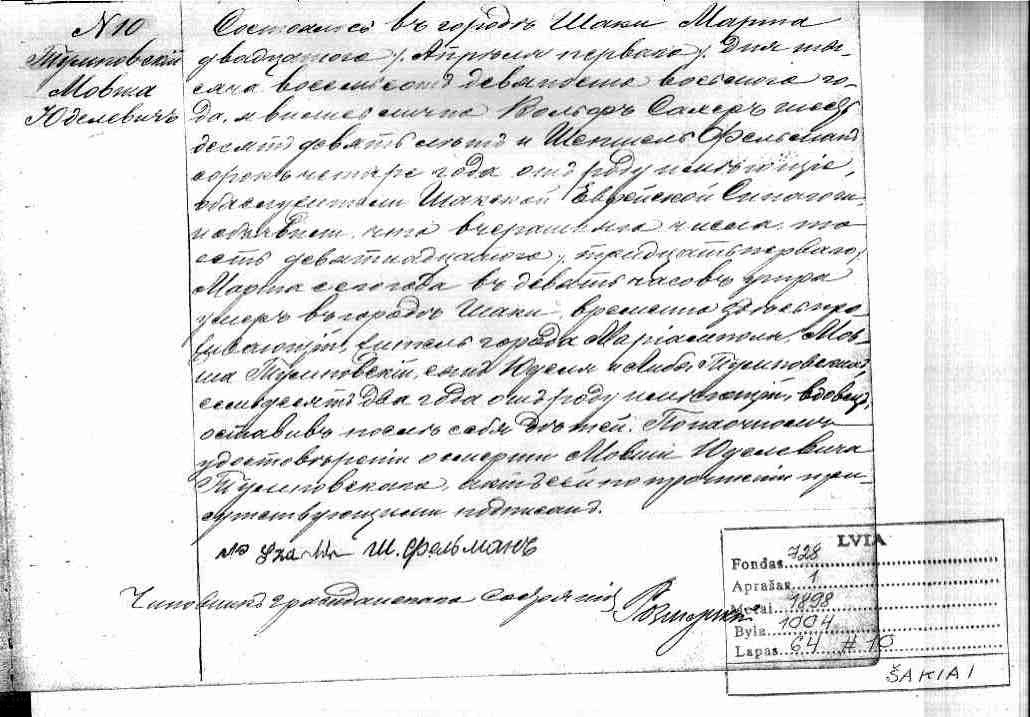 N 10
Тумповскій
Мовша
Юделевичъ
Состоялся въ городѣ Шаки Марта
двадцатаго / Апрѣля перваго / дня ты-
сяча восемьсотъ девяносто восьмого го-
да, явились лично Вольфъ Сахеръ шесть-
десятъ девять лѣтъ и Шепшель Фельманъ
сорокъ четыре года отъ роду имѣющіе,
обаслужители Шакской Еврейской Синагоги,
и объявили, что вчерашняго числа то
есть девятнадцатаго / тридцать перваго /
Марта сего года въ девять часовъ утра
умеръ въ городѣ Шаки, временно здѣсь про-
живающій, житель города Маріамполя, Мов-
ша Тумповскій, сынъ Юделя и Либы Тумповскихъ,
семьдесятъ два года отъ роду имѣющій, вдовецъ,
оставивъ послѣ себя дѣтей. По наочномъ
удостовѣреніи о смерти Мовши Юделевича
Тумповскаго, актъ сей по прочтеніи при-
сутствующими подписанъ.
Ш. Фельманъ
Чиновникъ гражданскаго состоянія
LVIA
Fondas 728
Aprašas 1
Metai 1898
Byla 1004
Lapas 64 #10
ŠAKIAI